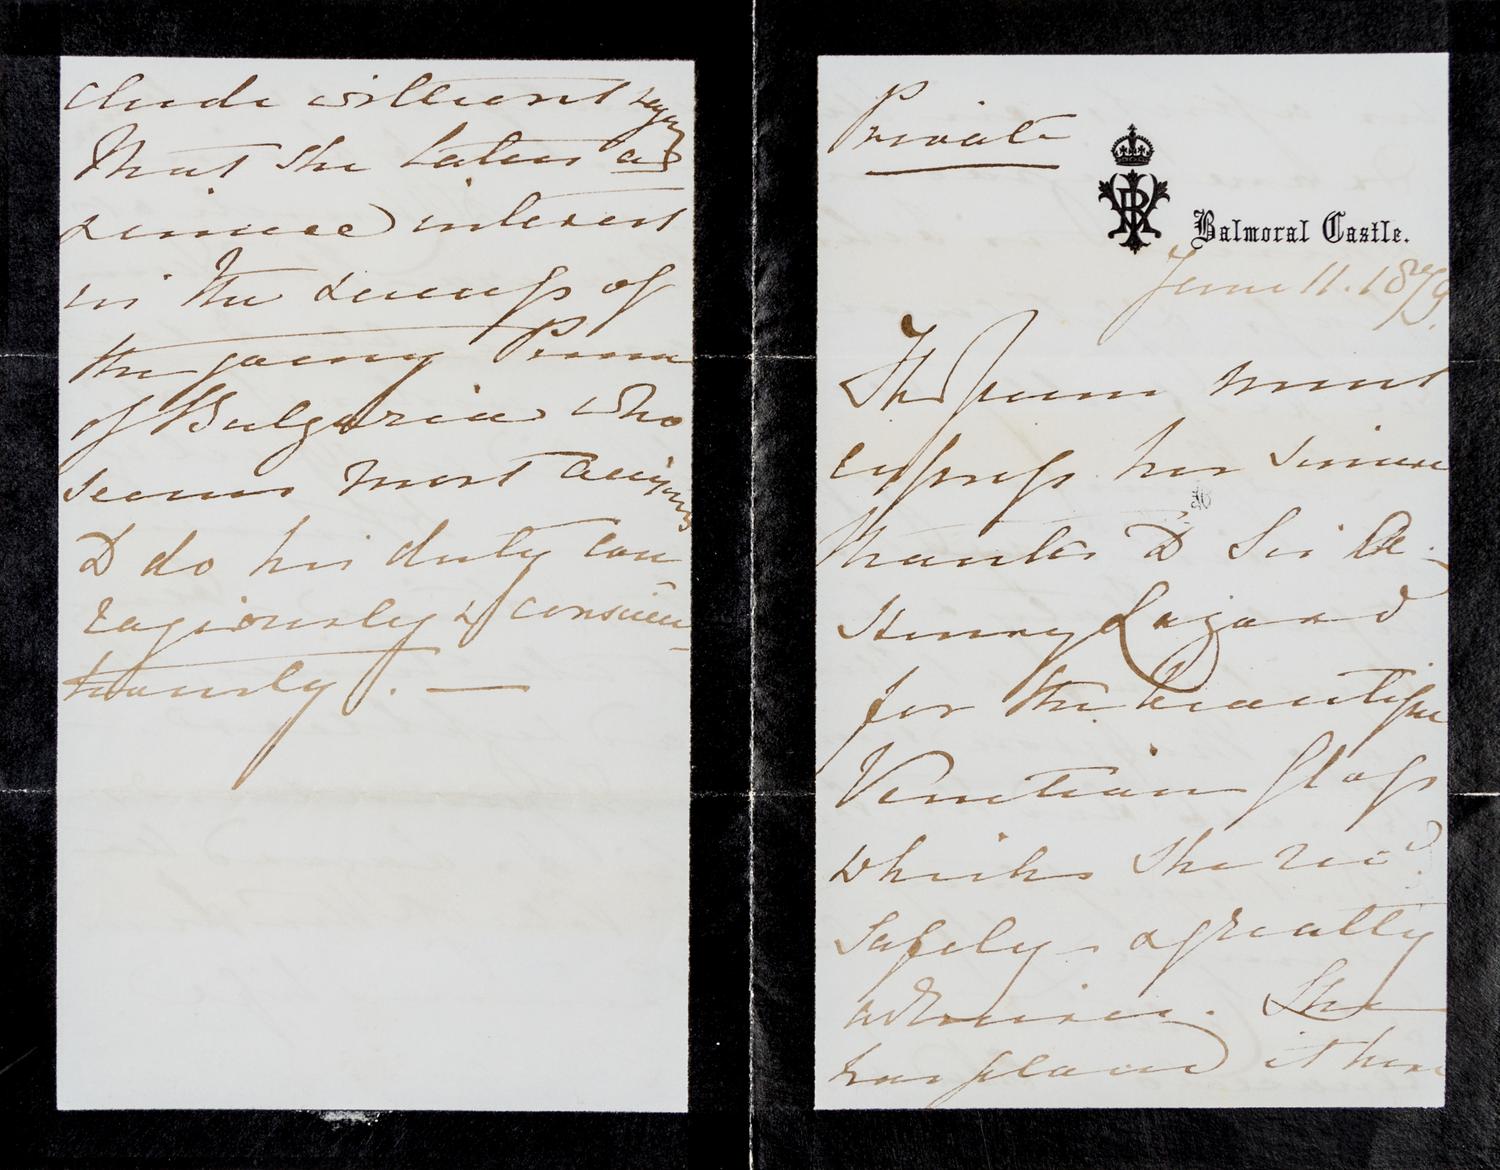 Private
Balmoral Castle.
June 11. 1879.
The Queen must
express her sincere
thanks to Sir A.
Henry Layard
for the beautiful
Venetian glass
which she recd.
safely & greatly
admires. She
has placed it here
clude without saying
that she takes a
sincere interest
in the success of
the young Prince
of Bulgaria who
seems most anxious
to do his duty cou
rageously & conscien
tiously. —